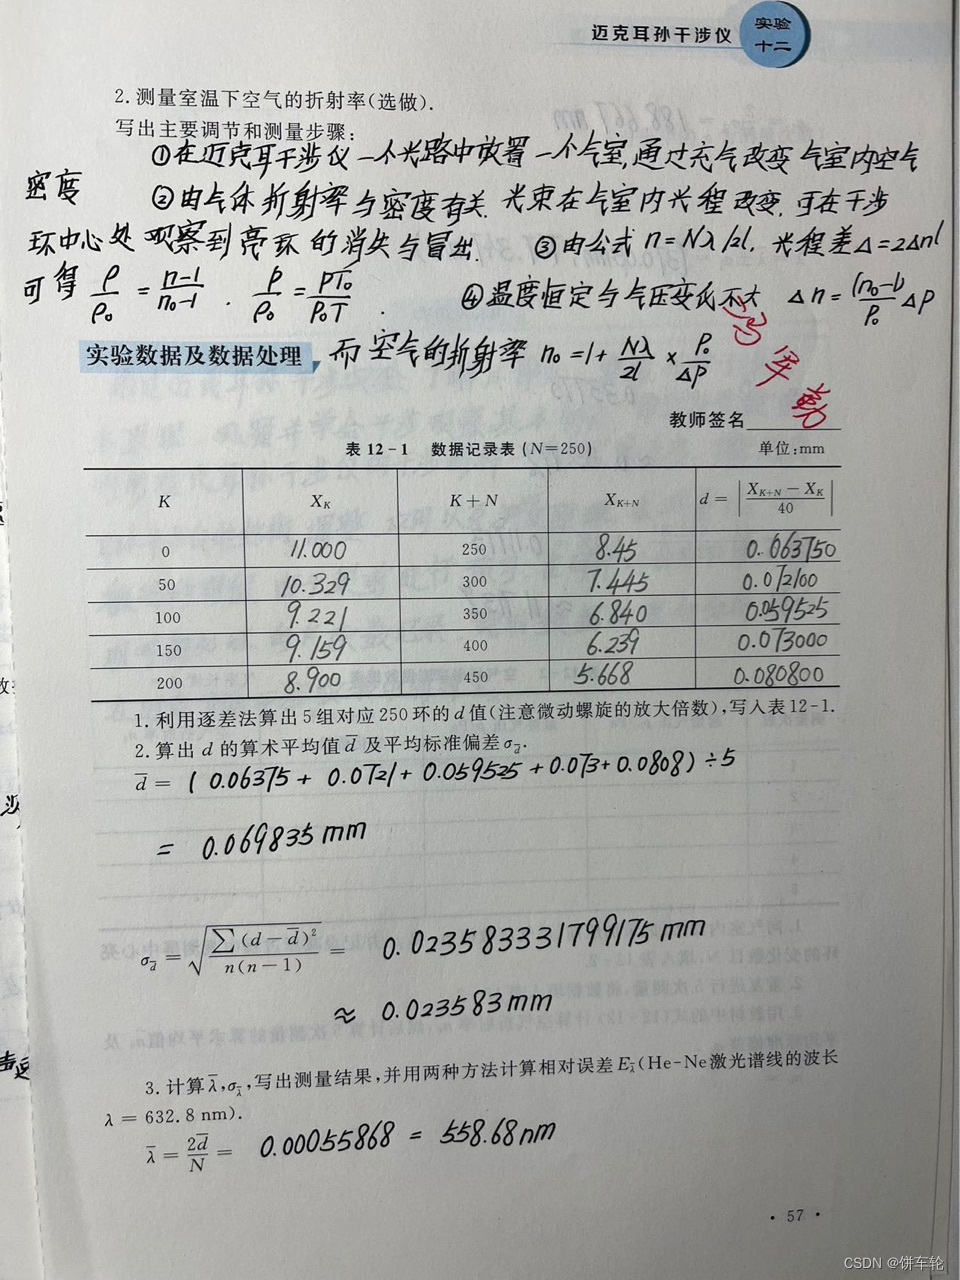 迈克耳孙干涉仪
实验
十二
2.测量室温下空气的折射率(选做).
写出主要调节和测量步骤:
①在迈克耳干涉仪一个光路中放置一个气室,通过充气改变气室内空气
密度 ②由气体折射率与密度有关.光束在气室内光程改变.可在干涉
环中心处观察到亮环的消失与冒出. ③由公式 n=Nλ/2l. 光程差Δ=2Δnl
可得 ρ/ρ₀ = n-1/n₀-1 . ρ/ρ₀ = PT₀/P₀T . ④温度恒定与气压变化不大 Δn=(n₀-1)/P₀ Δp
实验数据及数据处理 而空气的折射率 n₀=1+ Nλ/2l × P₀/ΔP
教师签名
表 12-1 数据记录表 (N=250) 单位:mm
K X_K K+N X_{K+N} d=|X_{K+N}-X_K/40|
0 11.000 250 8.45 0.063750
50 10.329 300 7.445 0.072100
100 9.221 350 6.840 0.059525
150 9.159 400 6.239 0.073000
200 8.900 450 5.668 0.080800
1.利用逐差法算出5组对应250环的d值(注意微动螺旋的放大倍数),写入表12-1.
2.算出 d 的算术平均值 d̄ 及平均标准偏差 σ_d̄.
d̄ = (0.06375+ 0.0721+ 0.059525+0.073+0.0808)÷5
= 0.069835mm
σ_d̄ = √(∑(d-d̄)²/n(n-1)) = 0.023583331799175mm
≈ 0.023583mm
3.计算 λ̄,σ_λ̄,写出测量结果,并用两种方法计算相对误差 E_λ̄(He-Ne激光谱线的波长
λ = 632.8 nm).
λ̄ = 2d̄/N = 0.00055868 = 558.68nm
· 57 ·
CSDN @饼车轮